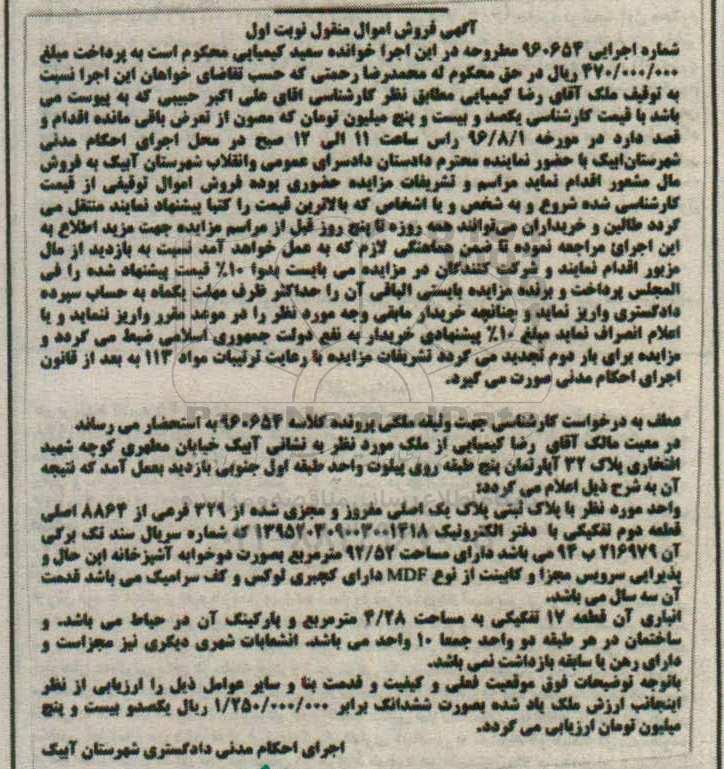 آگهی فروش اموال منقول نوبت اول
شماره اجرایی ۹۶۰۶۵۴ مطروحه در این اجرا خوانده سعید کیمیایی محکوم است به پرداخت مبلغ
۴۷۰/۰۰۰/۰۰۰ ریال در حق محکوم له محمدرضا رحمتی که حسب تقاضای خواهان این اجرا نسبت
به توقیف ملک آقای رضا کیمیایی مطابق نظر کارشناسی اقای علی اکبر حبیبی که به پیوست می
باشد با قیمت کارشناسی یکصد و بیست و پنج میلیون تومان که مصون از تعرض باقی مانده اقدام و
قصد دارد در مورخه ۹۶/۸/۱ راس ساعت ۱۱ الی ۱۲ صبح در محل اجرای احکام مدنی
شهرستان‌آبیک با حضور نماینده محترم دادستان دادسرای عمومی وانقلاب شهرستان آبیک به فروش
مال مشعور اقدام نماید مراسم و تشریفات مزایده حضوری بوده فروش اموال توقیفی از قیمت
کارشناسی شده شروع و به شخص و یا اشخاص که بالاترین قیمت را کتبا پیشنهاد نمایند منتقل می
گردد طالبن و خریداران می‌توانند همه روزه تا پنج روز قبل از مراسم مزایده جهت مزید اطلاع به
این اجرائ مراجعه نموده تا ضمن هماهنگی لازم که به عمل خواهد آمد نسبت به بازدید از مال
مزبور اقدام نمایند و شرکت کنندگان در مزایده می بایست بدوا ۱۰٪ قیمت پیشنهاد شده را فی
المجلس پرداخت و برنده مزایده بایستی الباقی آن را حداکثر ظرف مهلت یکماه به حساب سپرده
دادگستری واریز نماید و چنانچه خریدار مابقی وجه مورد نظر را در موعد مقرر واریز ننماید و یا
اعلام انصراف نماید مبلغ ۱۰٪ پیشنهادی خریدار به نفع دولت جمهوری اسلامی ضبط می گردد و
مزایده برای بار دوم تجدید می گردد تشریفات مزایده با رعایت ترتیبات مواد ۱۱۳ به بعد از قانون
اجرای احکام مدنی صورت می گیرد.
عطف به درخواست کارشناسی جهت وثیقه ملکی پرونده کلاسه ۹۶۰۶۵۴ به استحضار می رساند
در معیت مالک آقای رضا کیمیایی از ملک مورد نظر به نشانی آبیک خیابان مطهری کوچه شهید
افتخاری پلاک ۳۲ آپارتمان پنج طبقه روی پیلوت واحد طبقه اول جنوبی بازدید بعمل آمد که نتیجه
آن به شرح ذیل اعلام می گردد:
واحد مورد نظر با پلاک ثبتی پلاک یک اصلی مفروز و مجزی شده از ۳۲۹ فرعی از ۸۸۶۴ اصلی
قطعه دوم تفکیکی با دفتر الکترونیک ۱۳۹۵۲۰۳۰۹۰۰۳۰۰۱۴۱۸ که شماره سریال سند تک برگی
آن ۲۱۶۹۷۹ ب ۹۴ می باشد دارای مساحت ۹۲/۵۲ مترمربع بصورت دوخوابه آشپزخانه اپن حال و
پذیرایی سرویس مجزا و کابینت از نوع MDF دارای گچبری لوکس و کف سرامیک می باشد قدمت
آن سه سال می باشد.
انباری آن قطعه ۱۷ تفکیکی به مساحت ۴/۲۸ مترمربع و پارکینگ آن در حیاط می باشد. و
ساختمان در هر طبقه دو واحد جمعا ۱۰ واحد می باشد. انشعابات شهری دیگری نیز مجزاست و
دارای رهن یا سابقه بازداشت نمی باشد.
باتوجه توضیحات فوق موقعیت فعلی و کیفیت و قدمت بنا و سایر عوامل ذیل را ارزیابی از نظر
اینجانب ارزش ملک یاد شده بصورت ششدانگ برابر ۱/۲۵۰/۰۰۰/۰۰۰ ریال یکصدو بیست و پنج
میلیون تومان ارزیابی می گردد.
اجرای احکام مدنی دادگستری شهرستان آبیک